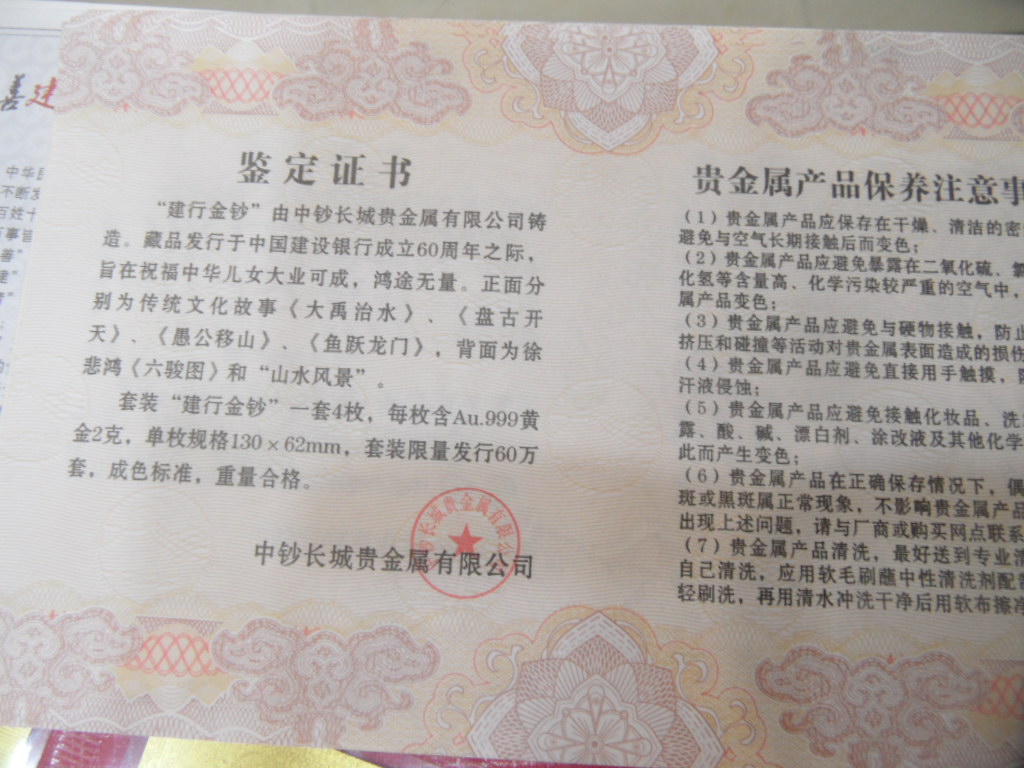 善建
中华
不断发
百姓十
事旨
善”
建”
鉴定证书
“建行金钞”由中钞长城贵金属有限公司铸
造。藏品发行于中国建设银行成立60周年之际，
旨在祝福中华儿女大业可成，鸿途无量。正面分
别为传统文化故事《大禹治水》、《盘古开
天》、《愚公移山》、《鱼跃龙门》，背面为徐
悲鸿《六骏图》和“山水风景”。
套装“建行金钞”一套4枚，每枚含Au.999黄
金2克，单枚规格130×62mm，套装限量发行60万
套，成色标准，重量合格。
中钞长城贵金属有限公司
贵金属产品保养注意事
（1）贵金属产品应保存在干燥、清洁的密
避免与空气长期接触后而变色；
（2）贵金属产品应避免暴露在二氧化硫、氯
化氢等含量高、化学污染较严重的空气中，
属产品变色；
（3）贵金属产品应避免与硬物接触，防止
挤压和碰撞等活动对贵金属表面造成的损伤
（4）贵金属产品应避免直接用手触摸，防
汗液侵蚀；
（5）贵金属产品应避免接触化妆品、洗
露、酸、碱、漂白剂、涂改液及其他化学
此而产生变色；
（6）贵金属产品在正确保存情况下，偶
斑或黑斑属正常现象，不影响贵金属产品
出现上述问题，请与厂商或购买网点联系
（7）贵金属产品清洗，最好送到专业清
自己清洗，应用软毛刷蘸中性清洗剂配制
轻刷洗，再用清水冲洗干净后用软布擦净